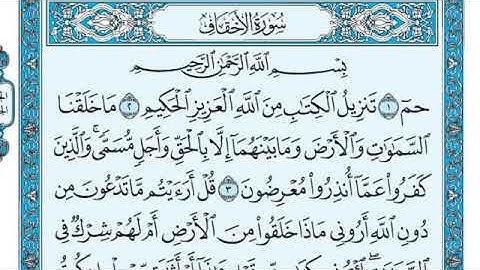 سُورَةُ الأَحْقَافِ
بِسْمِ اللَّهِ الرَّحْمَٰنِ الرَّحِيمِ
حمٓ ١ تَنزِيلُ الْكِتَابِ مِنَ اللَّهِ الْعَزِيزِ الْحَكِيمِ ٢ مَا خَلَقْنَا
السَّمَاوَاتِ وَالْأَرْضَ وَمَا بَيْنَهُمَا إِلَّا بِالْحَقِّ وَأَجَلٍ مُّسَمًّى ۚ وَالَّذِينَ
كَفَرُوا عَمَّا أُنذِرُوا مُعْرِضُونَ ٣ قُلْ أَرَءَيْتُم مَّا تَدْعُونَ مِن
دُونِ اللَّهِ أَرُونِي مَاذَا خَلَقُوا مِنَ الْأَرْضِ أَمْ لَهُمْ شِرْكٌ فِي